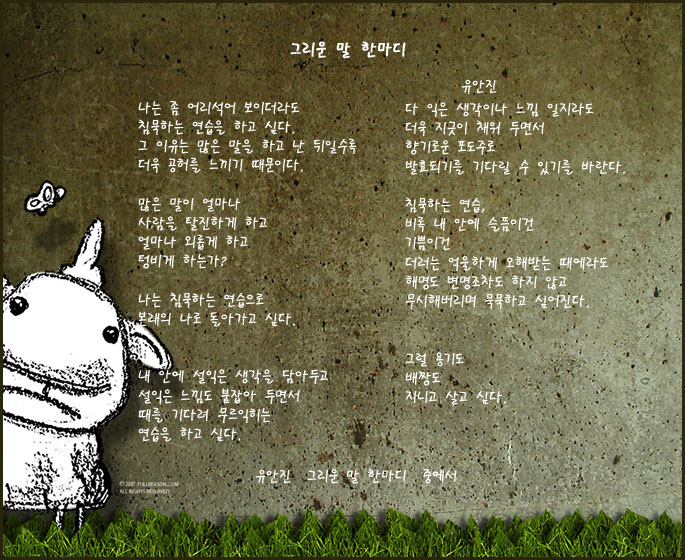 그리운 말 한마디
유안진
나는 좀 어리석어 보이더라도
침묵하는 연습을 하고 싶다.
그 이유는 많은 말을 하고 난 뒤일수록
더욱 공허를 느끼기 때문이다.
많은 말이 얼마나
사람을 탈진하게 하고
얼마나 외롭게 하고
텅비게 하는가?
나는 침묵하는 연습으로
본래의 나로 돌아가고 싶다.
내 안에 설익은 생각을 담아두고
설익은 느낌도 붙잡아 두면서
때를 기다려 무르익히는
연습을 하고 싶다.
다 익은 생각이나 느낌 일지라도
더욱 지긋이 채워 두면서
향기로운 포도주로
발효되기를 기다릴 수 있기를 바란다.
침묵하는 연습,
비록 내 안에 슬픔이건
기쁨이건
더러는 억울하게 오해받는 때에라도
해명도 변명조차도 하지 않고
무시해버리며 묵묵하고 싶어진다.
그럴 용기도
배짱도
지니고 살고 싶다.
유안진 그리운 말 한마디 중에서
© 2007 FULLREASON.COM
ALL RIGHTS RESERVED